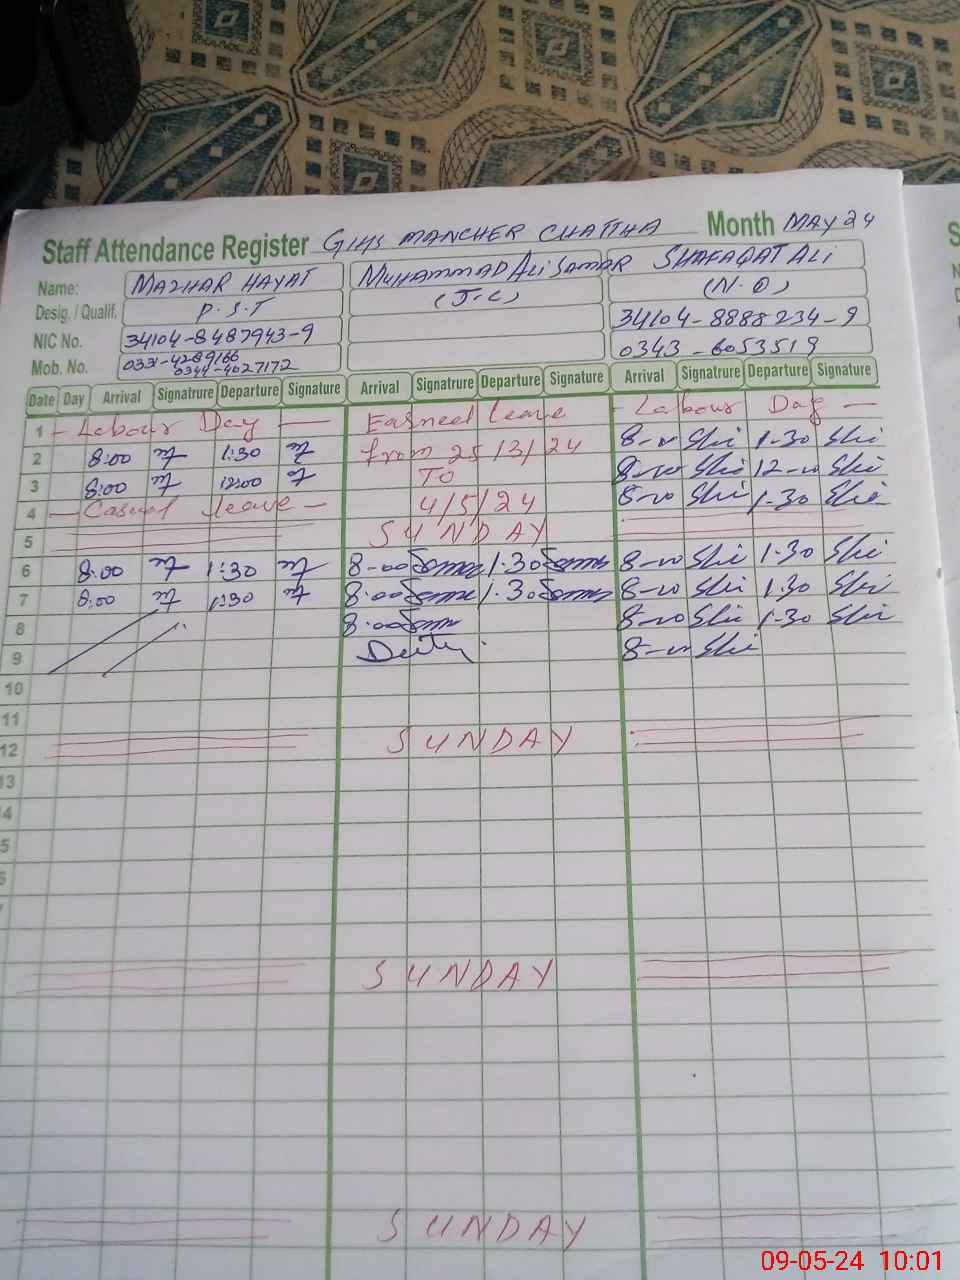 Staff Attendance Register GIHS MANCHER CHATTHA Month MAY 24
Name: MAZHAR HAYAT MUHAMMAD ALI SAMAR SHAFAQAT ALI
Desig. / Qualif. P.S.T (J.C) (N.Q)
NIC No. 34104-8487943-9 34104-8888234-9
Mob. No. 0331-4289166 0343-6053519
0344-4027172
Date Day Arrival Signatrure Departure Signature Arrival Signatrure Departure Signature Arrival Signatrure Departure Signature
1 - Labour Day - Earned leave - Labour Day -
2 8:00 1:30 from 25/3/24 8-00 1-30
3 8:00 12:00 TO 8-00 12-00
4 - Casual leave - 4/5/24 8-00 1-30
5 SUNDAY
6 8:00 1:30 8-00 1:30 8-00 1-30
7 8:00 1:30 8:00 1:30 8-00 1:30
8 8:00 8-00 1-30
9 Duty. 8-00
10
11
12 SUNDAY
13
SUNDAY
SUNDAY
09-05-24 10:01